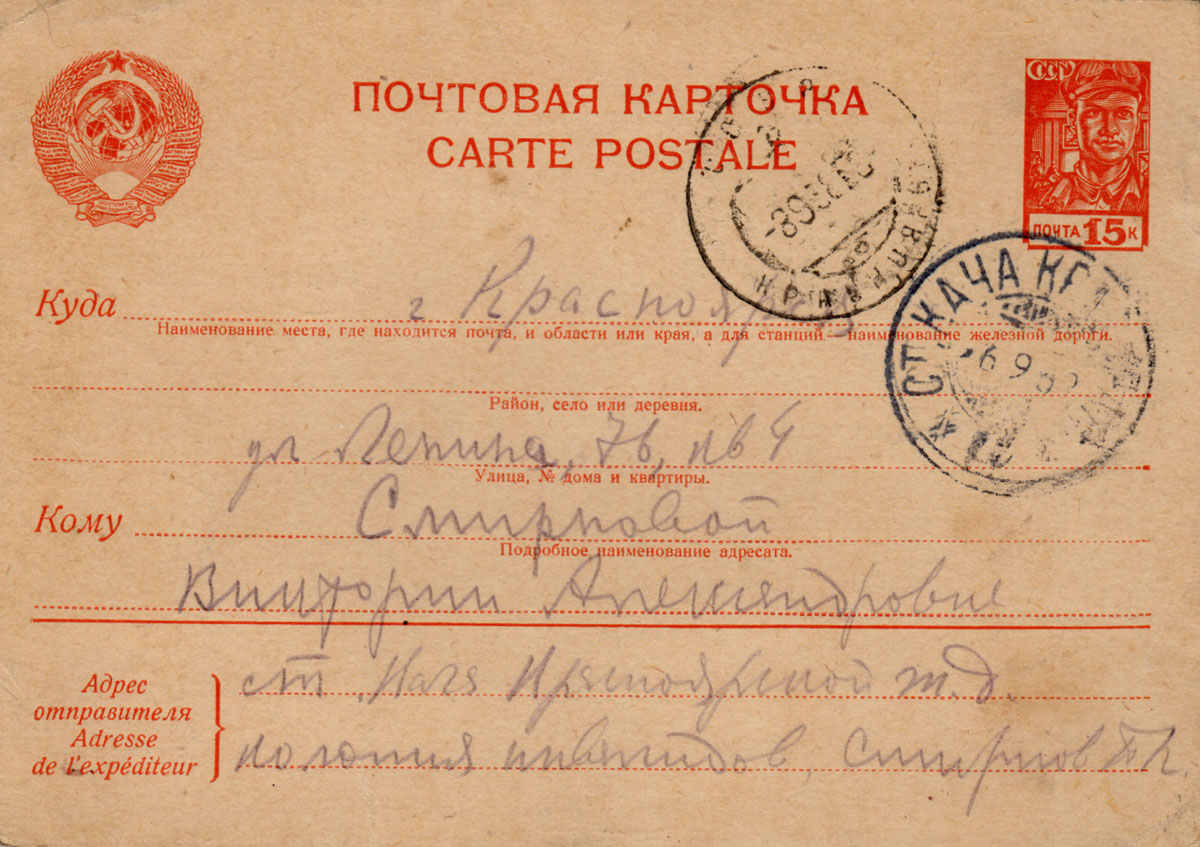 ПОЧТОВАЯ КАРТОЧКА
CARTE POSTALE
СССР
ПОЧТА 15 К
СССР
КРАСНОЯРСК
СТ. КАЧА КРА
6 9
Куда г Красноярск
Наименование места, где находится почта, и области или края, а для станций — наименование железной дороги.
Район, село или деревня.
ул Ленина, 76, кв 4
Улица, № дома и квартиры.
Кому Смирновой
Подробное наименование адресата.
Виктории Александровне
Адрес отправителя
Adresse de l'expéditeur
ст Кача Красноярской ж.д.
колония инвалидов, Смирнов